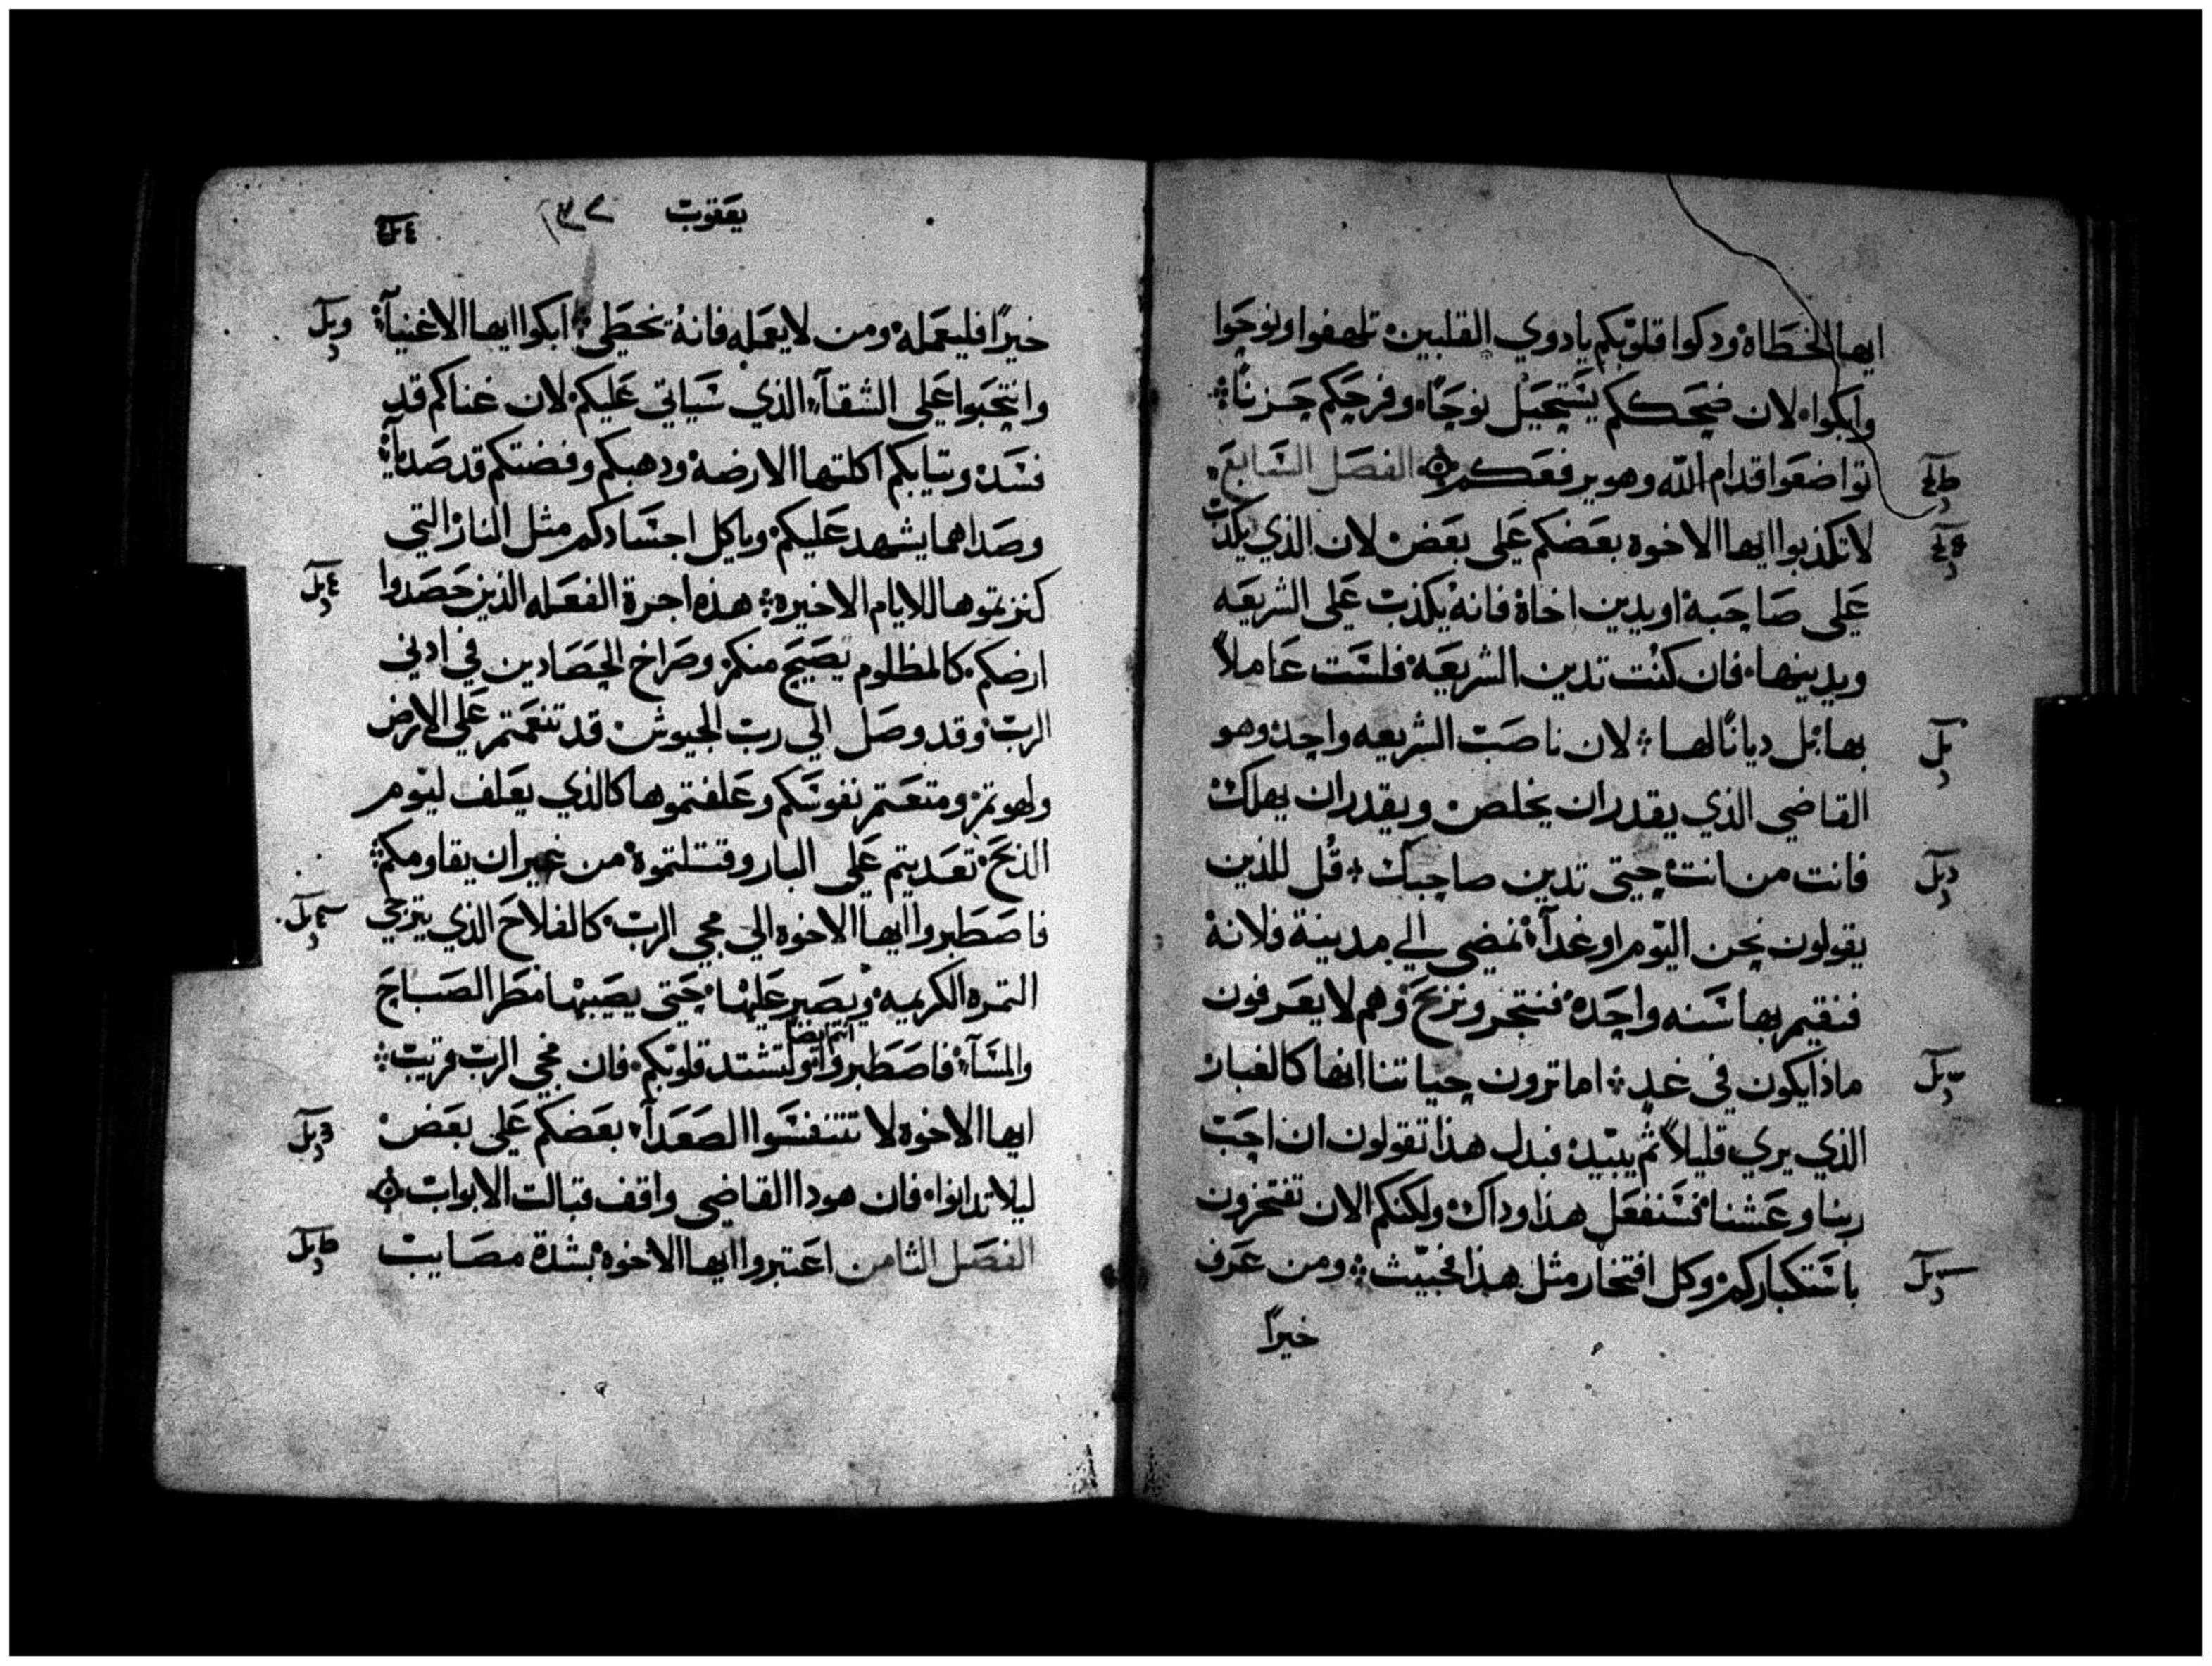 ايها الخطاه وذكوا قلوبكم يادوي القلبين تلهفوا ونوحوا
وابكوا لان ضحككم يستحيل نوحًا وفرحكم حزنًا
تواضعوا قدام الله وهو يرفعكم الفصل السابع
لا تكذبوا ايها الاخوه بعضكم على بعض لان الذي يكذب
على صاحبه او يدين اخاه فانه يكذب على الشريعه
ويدينها فان كنت تدين الشريعه فلست عاملاً
بها بل ديانًا لها لان ناصب الشريعه واحد وهو
القاضي الذي يقدر ان يخلص ويقدر ان يهلك
فانت من انت حتى تدين صاحبك قل للذين
يقولون نحن اليوم او غداً نمضي الي مدينة فلانه
فنقيم بها سنه واحده فنتجر ونربح وهم لا يعرفون
ماذا يكون في غدٍ اما ترون حياتنا انها كالغبار
الذي يري قليلاً ثم يبيد فبدل هذا تقولون ان احب
ربنا وعشنا فسنفعل هذا وداك ولكنكم الان تفتخرون
باستكباركم وكل افتخار مثل هذا فخبيث ومن عرف
خيراً
يعقوب
خيرًا فليعمله ومن لا يعمله فانه يخطي ابكوا ايها الاغنيآ
وانتحبوا على الشقآ الذي سياتي عليكم لان غناكم قد
فسد وتيابكم اكلتها الارضه ودهبكم وفضتكم قد صدأ
وصداهما يشهد عليكم وياكل اجسادكم مثل النار التي
كنزتموها للايام الاخيره هذه اجرة الفعله الذين حصدوا
ارضكم كالمظلوم يصيح منكم وصراخ الحصادين في ادني
الرب وقد وصل الي رب الجيوش قد تنعمتم على الارض
ولهوتم ومتعتم نفوسكم وعلفتموها كالذي يعلف ليوم
الذبح تعديتم على البار وقتلتموه من غير ان يقاومكم
فاصطبروا ايها الاخوه الي مجي الرب كالفلاح الذي يترجى
التمره الكريمه ويصبر عليها حتى يصيبها مطر الصباح
والمسآ فاصطبروا انتم ايضا ولتشتد قلوبكم فان مجي الرب قريب
ايها الاخوه لا تتنفسوا الصعدآ بعضكم على بعض
ليلا تدانوا فان هودا القاضي واقف قبالت الابواب
الفصل الثامن اعتبروا ايها الاخوه بشدة مصايب